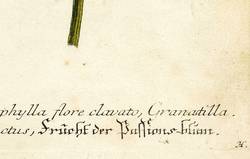 phylla flore clavato, Granadilla.
ctus, Frücht der Passions-blum.